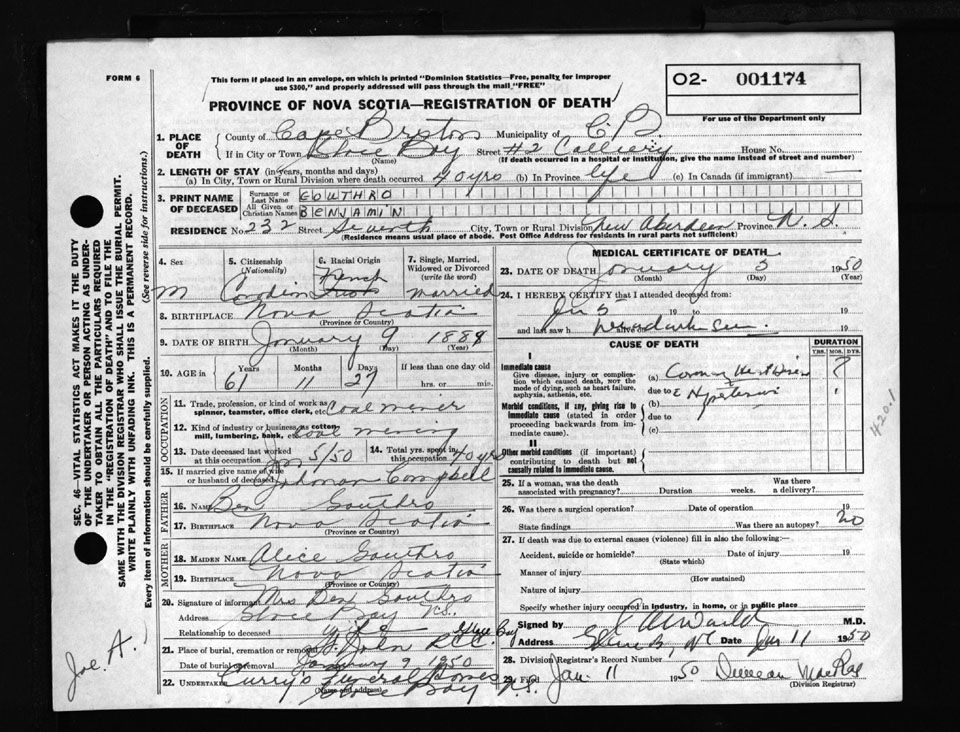 FORM 6
This form if placed in an envelope, on which is printed "Dominion Statistics—Free, penalty for improper
use $300," and properly addressed will pass through the mail "FREE"
O2- 001174
For use of the Department only
PROVINCE OF NOVA SCOTIA—REGISTRATION OF DEATH
1. PLACE OF DEATH County of Cape Breton Municipality of C B.
If in City or Town Glace Bay (Name) Street #2 Colliery House No.
(If death occurred in a hospital or institution, give the name instead of street and number)
2. LENGTH OF STAY (in years, months and days)
(a) In City, Town or Rural Division where death occurred 40 yrs (b) In Province life (c) In Canada (if immigrant)
3. PRINT NAME OF DECEASED Surname or Last Name GOUTHRO
All Given or Christian Names BENJAMIN
RESIDENCE No. 232 Street Seventh City, Town or Rural Division New Aberdeen Province N. S.
(Residence means usual place of abode. Post Office Address for residents in rural parts not sufficient)
4. Sex M
5. Citizenship (Nationality) Canadian
6. Racial Origin French
7. Single, Married, Widowed or Divorced (write the word) Married
8. BIRTHPLACE Nova Scotia
(Province or Country)
9. DATE OF BIRTH January 9 1888
(Month) (Day) (Year)
10. AGE in Years 61 Months 11 Days 27 If less than one day old hrs. or min.
OCCUPATION
11. Trade, profession, or kind of work as spinner, teamster, office clerk, etc. Coal miner
12. Kind of industry or business, as cotton mill, lumbering, bank, etc. Coal mining
13. Date deceased last worked at this occupation Jan 5/50
14. Total yrs. spent in this occupation 40 yrs
15. If married give name of wife or husband of deceased Campbell
FATHER
16. Name Ben Gouthro
17. Birthplace Nova Scotia
(Province or Country)
MOTHER
18. MAIDEN NAME Alice Gouthro
19. BIRTHPLACE Nova Scotia
(Province or Country)
20. Signature of informant Mrs Ben Gouthro
Address Glace Bay N.S.
Relationship to deceased wife
21. Place of burial, cremation or removal St John R.C.C. Glace Bay
Date of burial or removal January 9 1950
22. UNDERTAKER Curry's Funeral Homes
(Name and address) Glace Bay N.S.
MEDICAL CERTIFICATE OF DEATH
23. DATE OF DEATH January 5 1950
(Month) (Day) (Year)
24. I HEREBY CERTIFY that I attended deceased from:
Jan 5 19 to 19
and last saw h 19
CAUSE OF DEATH
DURATION
YRS. MOS. DYS.
I
Immediate cause
Give disease, injury or complication which caused death, NOT the mode of dying, such as heart failure, asphyxia, asthenia, etc.
(a) Coronary Heart Disease ?
due to Hypertension
Morbid conditions, if any, giving rise to immediate cause (stated in order proceeding backwards from immediate cause).
(b)
due to
(c)
II
Other morbid conditions (if important) contributing to death but not causally related to immediate cause.
420.1
25. If a woman, was the death associated with pregnancy? Duration weeks. Was there a delivery?
26. Was there a surgical operation? Date of operation 19
State findings Was there an autopsy? no
27. If death was due to external causes (violence) fill in also the following:—
Accident, suicide or homicide? Date of injury 19
(State which)
Manner of injury
(How sustained)
Nature of injury
Specify whether injury occurred in industry, in home, or in public place
Signed by M.D.
Address Glace B, Date Jan 11 1950
28. Division Registrar's Record Number
29. Filed Jan. 11 1950 Duncan MacRae
(Division Registrar)
SEC. 46—VITAL STATISTICS ACT MAKES IT THE DUTY
OF THE UNDERTAKER OR PERSON ACTING AS UNDERTAKER
TO OBTAIN ALL THE PARTICULARS REQUIRED
IN THE "REGISTRATION OF DEATH" AND TO FILE THE
SAME WITH THE DIVISION REGISTRAR WHO SHALL ISSUE THE BURIAL PERMIT.
WRITE PLAINLY WITH UNFADING INK. THIS IS A PERMANENT RECORD.
Every item of information should be carefully supplied. (See reverse side for instructions.)
Joe. A.